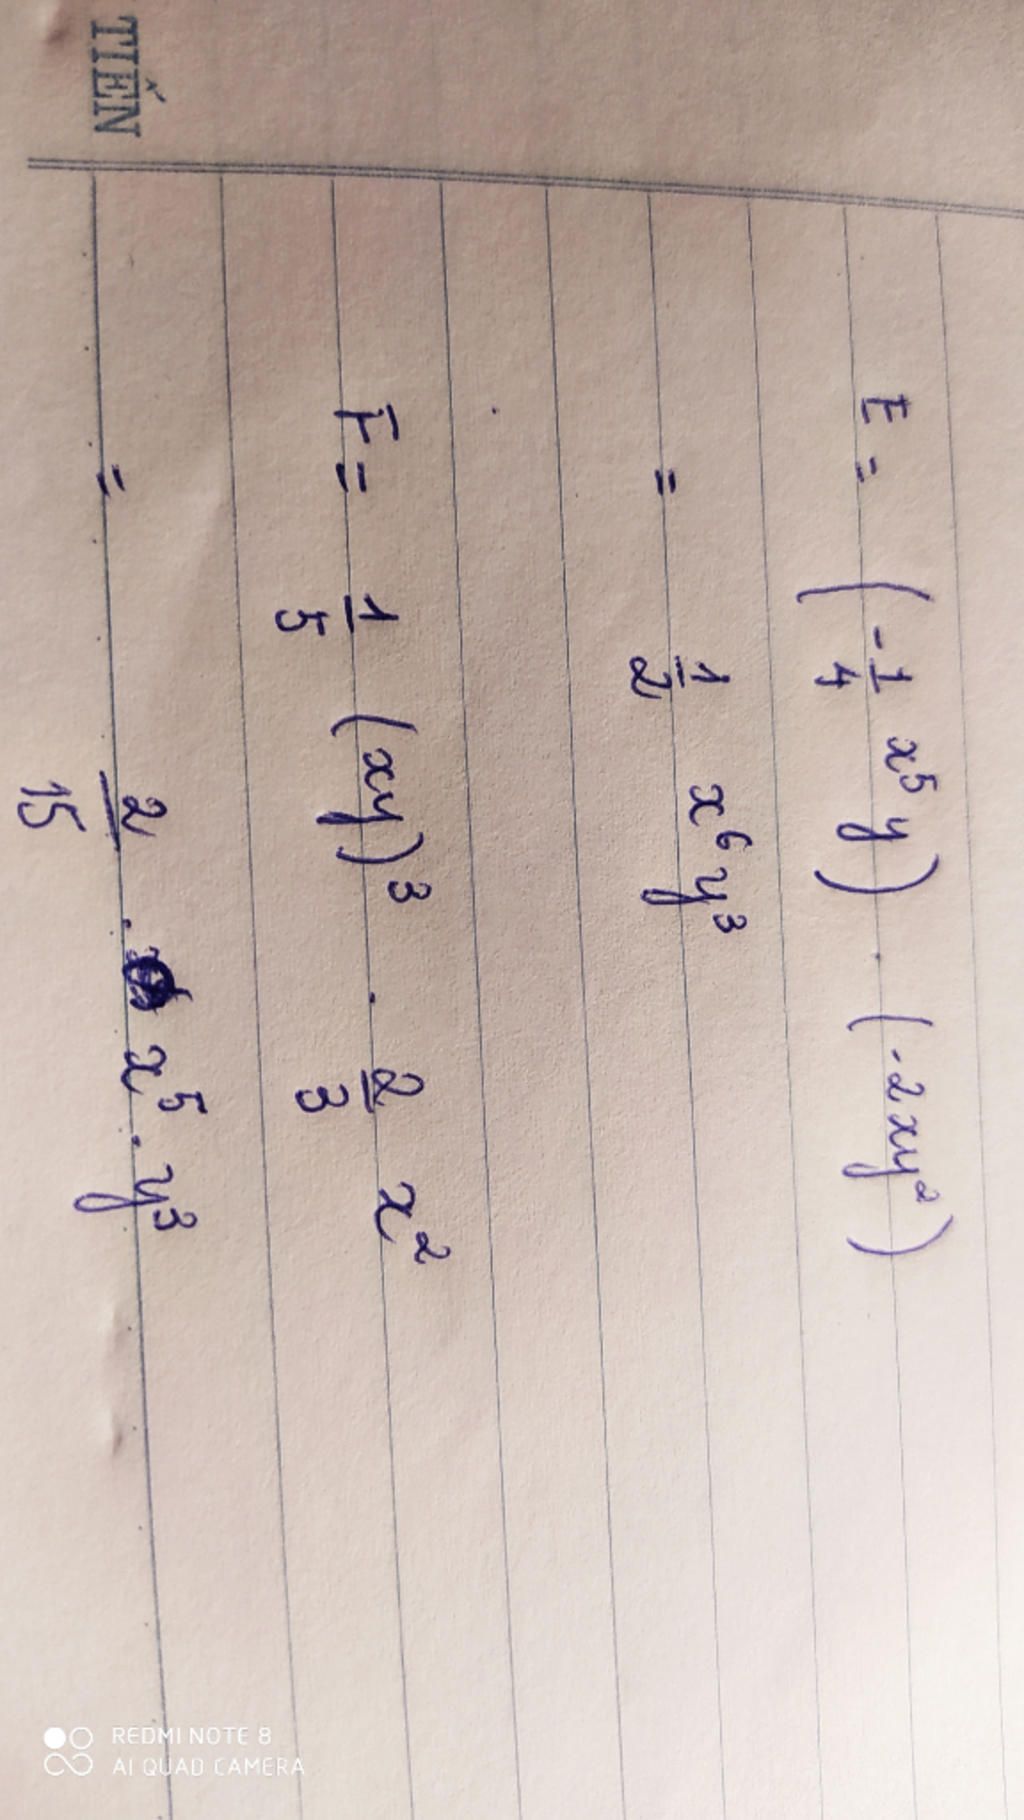 E = (-1/4 x⁵y) . (-2xy²)
= 1/2 x⁶y³
F = 1/5 (xy)³ . 2/3 x²
= 2/15 . x⁵ . y³
TIẾN
REDMI NOTE 8
AI QUAD CAMERA